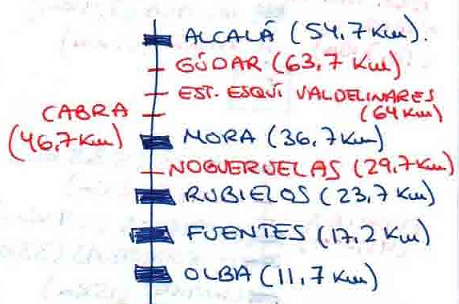 ALCALÁ (54,7 Km).
GÚDAR (63,7 Km)
EST. ESQUÍ VALDELINARES
(64 Km)
CABRA
(46,7 Km)
MORA (36,7 Km)
NOGUERUELAS (29,7 Km)
RUBIELOS (23,7 Km)
FUENTES (17,2 Km)
OLBA (11,7 Km)